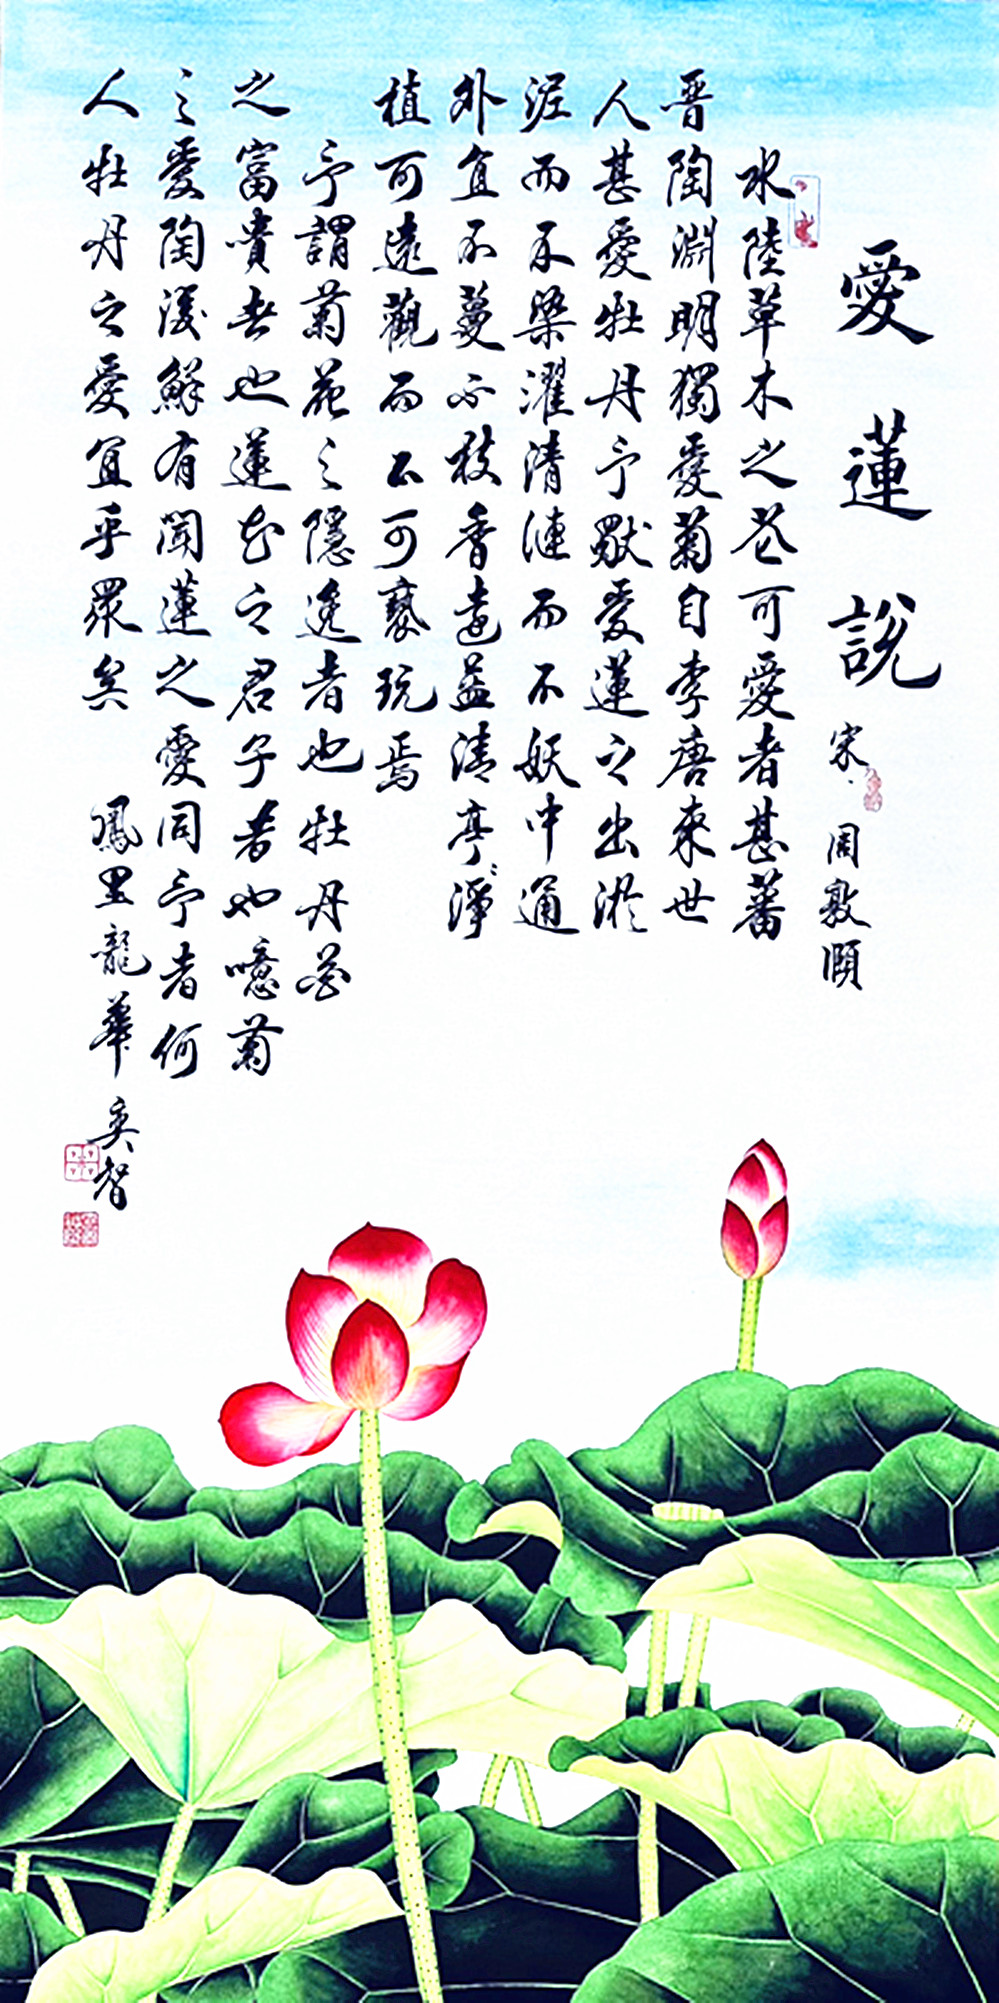 愛蓮說
宋·周敦頤
水陸草木之花可愛者甚蕃
晋陶淵明獨愛菊自李唐来世
人甚愛牡丹予獨愛蓮之出淤
泥而不染濯清漣而不妖中通
外直不蔓不枝香遠益清亭〻淨
植可遠觀而不可褻玩焉
予謂菊花之隱逸者也牡丹花
之富貴者也蓮花之君子者也噫菊
之愛陶後鮮有聞蓮之愛同予者何
人牡丹之愛宜乎眾矣 鳳里龍華 奕智